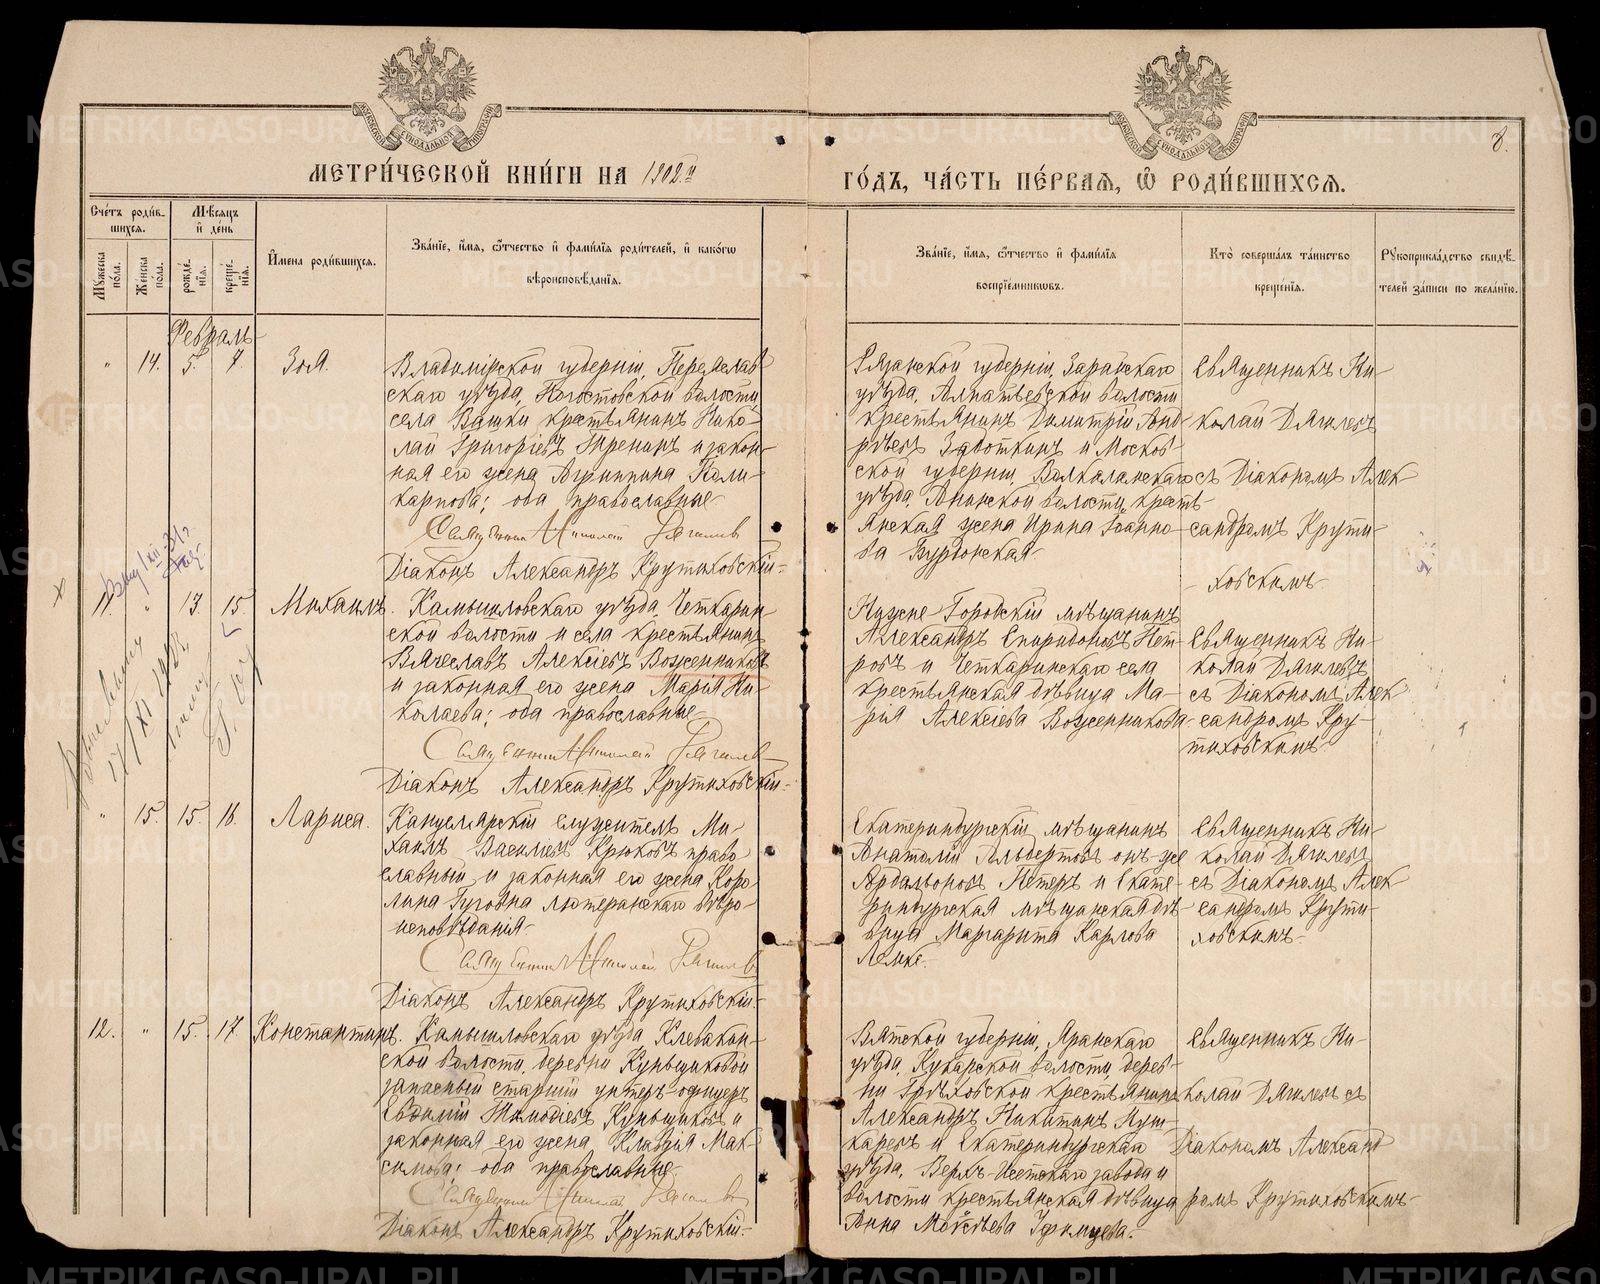 МЕТРИ́ЧЕСКОЙ КНИ́ГИ НА 1902й
ГО́ДЪ, ЧА́СТЬ ПЕ́РВАЯ, Ѽ РОДИ́ВШИХСЯ.
8.
Сче́тъ роди́в-
шихся.
Мѣ́сяцъ
и́ де́нь
Мꙋ́жеска по́ла.
Же́нска по́ла.
рожде́-
нїя.
креще́-
нїя.
И҆мена роди́вшихся.
Зва́нїе, и҆́мя, ѻ҆́тчество и҆ фами́лїя роди́телей, и҆ како́гѡ
вѣроисповѣ́данїя.
Зва́нїе, и҆́мя, ѻ҆́тчество и҆ фами́лїя
воспрїе́мникѡвъ.
Кто̀ соверша́лъ та́инство
креще́нїя.
Рꙋкоприкла́дство свидѣ́-
телей за́писи по жела́нїю.
Февраль
" 14. 5. 7. Зоя.
Владимірской губерніи, Переслав-
скаго уѣзда, Хогостовской волости,
села Вашки крестьянинъ Нико-
лай Григоріевъ и закон-
ная его жена Агриппина Поли-
карпова; оба православные
Священник Николай Дягилев
Діаконъ Александръ Крутиховскій.
Рязанской губерніи, Зарайскаго
уѣзда, Алпатьевской волости
крестьянинъ Димитрій Анд-
реевъ Заботкинъ и Москов-
ской губерніи, Волколамскаго
уѣзда, Аннинской волости, кресть-
янская жена Ирина Іоанно-
ва Бурдонская
Священникъ Ни-
колай Дягилевъ
съ Діакономъ Алек-
сандромъ Крути-
ховскимъ.
11. " 13. 15. Михаилъ.
Камышловскаго уѣзда Четкарин-
ской волости и села крестьянинъ
Вячеславъ Алексіевъ Воженниковъ
и законная его жена Марія Ни-
колаева; оба православные
Священник Николай Дягилев
Діаконъ Александръ Крутиховскій.
Нижне-Городскій мѣщанинъ
Александръ Спиридоновъ Пет-
ровъ и Четкаринскаго села
крестьянская дѣвица Ма-
рія Алексіева Воженникова
Священникъ Ни-
колай Дягилевъ
съ Діакономъ Алек-
сандромъ Кру-
тиховскимъ
" 15. 15. 16. Лариса.
Канцелярскій служитель Ми-
хаилъ Васильевъ Крюковъ право-
славный и законная его жена Каро-
лина Гуговна лютеранскаго вѣро-
исповѣданія
Священник Николай Дягилев
Діаконъ Александръ Крутиховскій.
Екатеринбургскій мѣщанинъ
Анатолій Альбертовъ онъ-же
Ардальоновъ Петеръ и Екате-
ринбургская мѣщанская дѣ-
вица Маргарита Карлова
Лемке.
Священникъ Ни-
колай Дягилевъ
съ Діакономъ Алек-
сандромъ Крути-
ховскимъ
12. " 15. 17 Константинъ.
Камышловскаго уѣзда Клевакин-
ской волости, деревни Куньщиковой
запасный старшій унтеръ-офицеръ
Евдокій Тимофіевъ Куньщиковъ и
законная его жена Клавдія Мак-
симова; оба православные
Священник Николай Дягилев
Діаконъ Александръ Крутиховскій.
Вятской губерніи, Яранскаго
уѣзда, Кукарской волости, дерев-
ни крестьянинъ
Александръ Никитинъ Пуш-
каревъ и Екатеринбургскаго
уѣзда, Верхъ-Исетскаго завода и
волости крестьянская дѣвица
Анна Моисѣева Уфимцева.
Священникъ Ни-
колай Дягилевъ съ
Діакономъ Александ-
ромъ Крутиховскимъ
METRIKI.GASO-URAL.RU